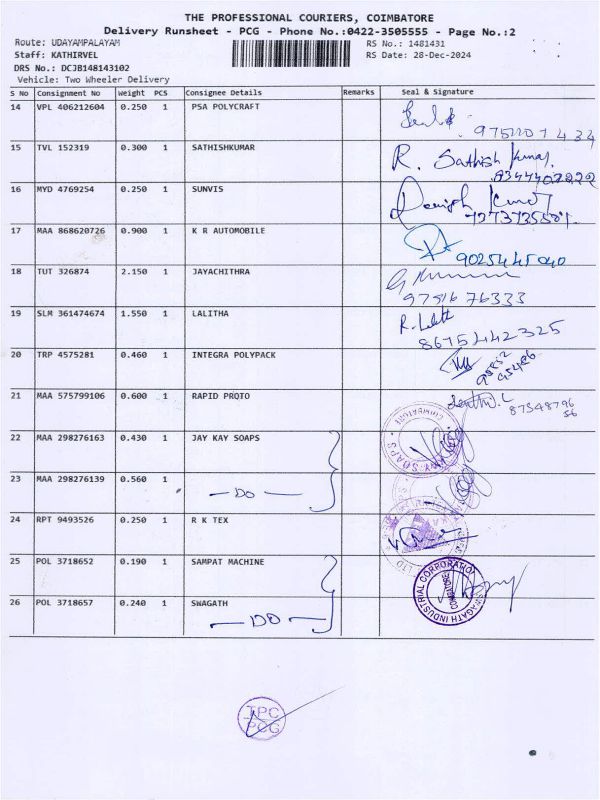 THE PROFESSIONAL COURIERS, COIMBATORE
Delivery Runsheet - PCG - Phone No.:0422-3505555 - Page No.:2
Route: UDAYAMPALAYAM RS No.: 1481431
Staff: KATHIRVEL RS Date: 28-Dec-2024
DRS No.: DCJB148143102
Vehicle: Two Wheeler Delivery
S No Consignment No Weight PCS Consignee Details Remarks Seal & Signature
14 VPL 406212604 0.250 1 PSA POLYCRAFT
15 TVL 152319 0.300 1 SATHISHKUMAR R. Sathish Kumar
9344407222
16 MYD 4769254 0.250 1 SUNVIS
17 MAA 868620726 0.900 1 K R AUTOMOBILE
9025445040
18 TUT 326874 2.150 1 JAYACHITHRA
97516 76333
19 SLM 361474674 1.550 1 LALITHA R. Lalith
8675442325
20 TRP 4575281 0.460 1 INTEGRA POLYPACK
21 MAA 575799106 0.600 1 RAPID PROTO
8754879656
22 MAA 298276163 0.430 1 JAY KAY SOAPS
COIMBATORE
SOAPS
23 MAA 298276139 0.560 1
— DO —
24 RPT 9493526 0.250 1 R K TEX
25 POL 3718652 0.190 1 SAMPAT MACHINE
SWAGATH INDUSTRIAL CORPORATION
COIMBATORE
26 POL 3718657 0.240 1 SWAGATH
— DO —
TPC
PCG